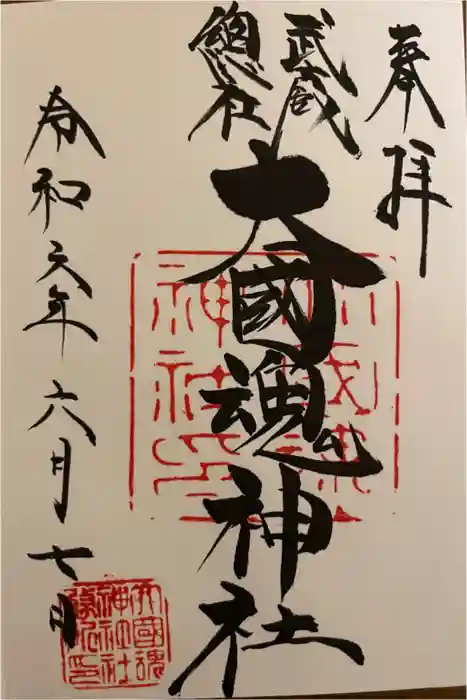 奉拝
武蔵
總社
大國魂神社
令和元年六月七日
大國魂
神社